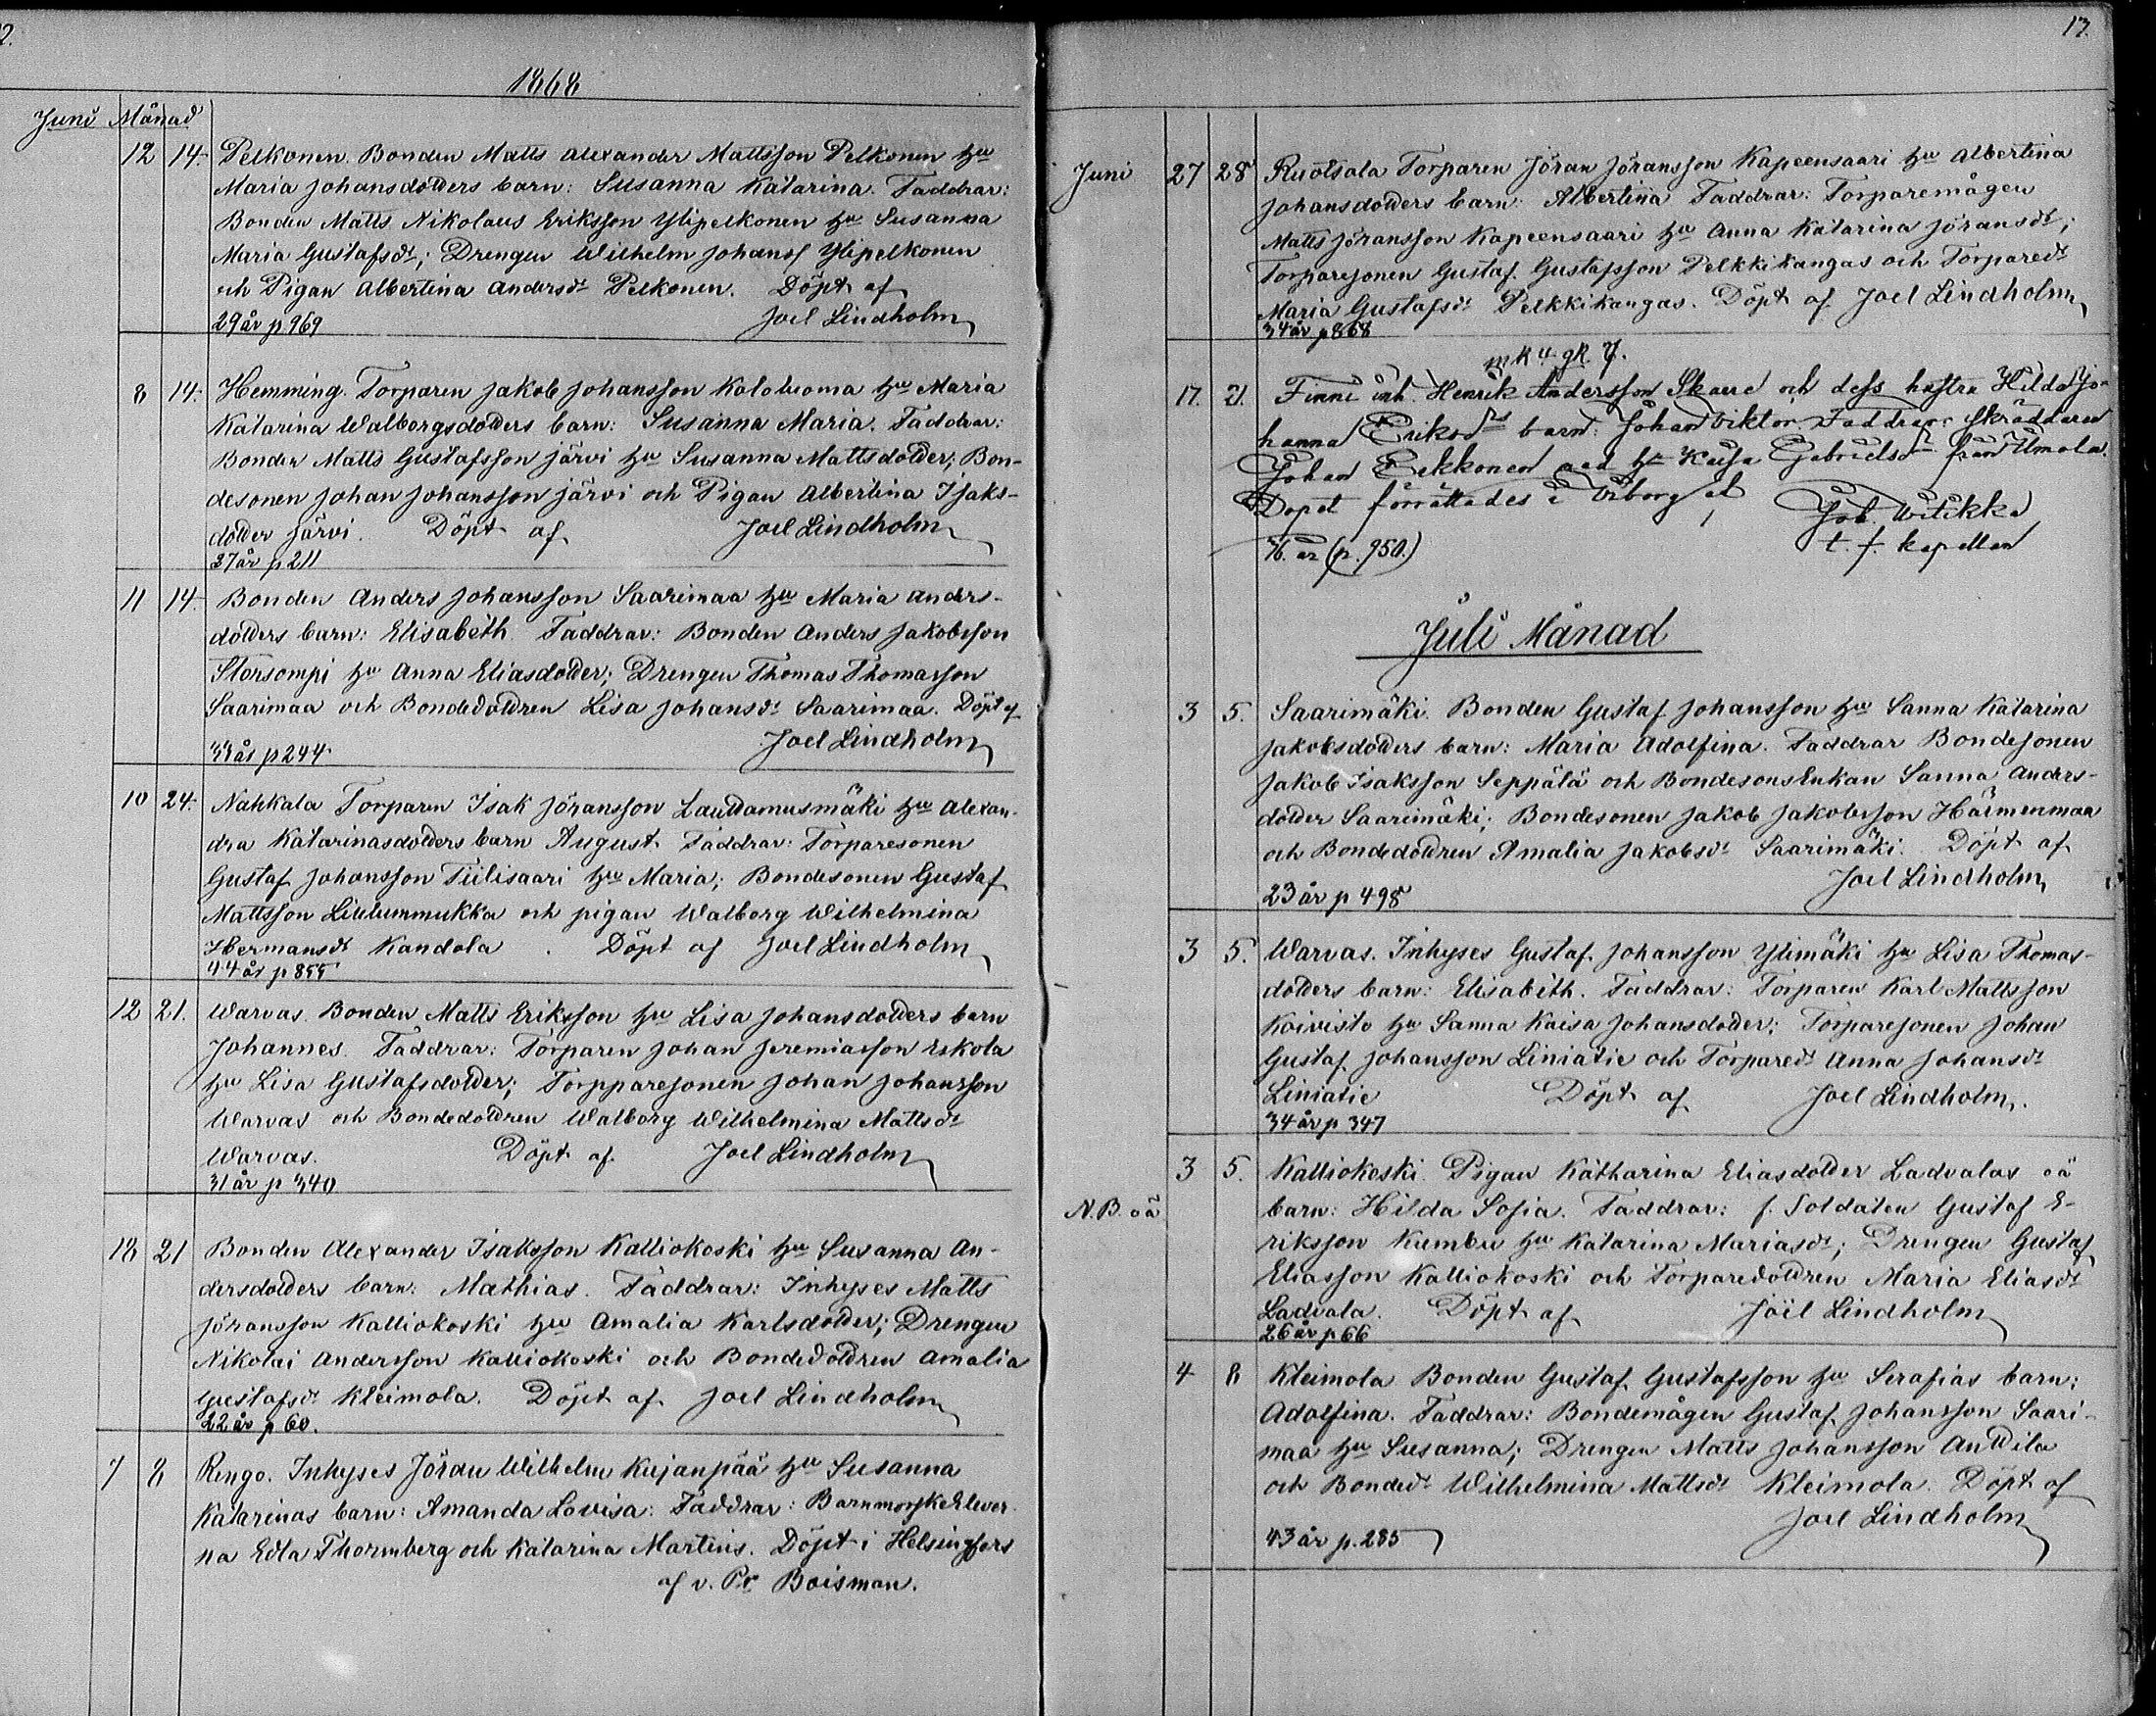 2.
1868
Juni Månad
12 14. Pelkonen. Bonden Matts Alexander Mattsson Pelkonen hu
Maria Johansdotters barn: Susanna Katarina. Faddrar:
Bonden Matts Nikolaus Eriksson Ylipelkonen hu Susanna
Maria Gustafsdr; Drengen Wilhelm Johanss Ylipelkonen
och Pigan Albertina Andersdr Pelkonen. Döpt af
29 år p 969 Joel Lindholm
8 14. Hemming. Torparen Jakob Johansson Kololuoma hu Maria
Katarina Walborgsdotters barn: Susanna Maria. Faddrar:
Bonden Matts Gustafsson Järvi hu Susanna Mattsdotter; Bon-
desonen Johan Johansson Järvi och Pigan Albertina Isaks-
dotter Järvi. Döpt af Joel Lindholm
27 år p 211
11 14. Bonden Anders Johansson Saarimaa hu Maria Anders-
dotters barn: Elisabeth. Faddrar: Bonden Anders Jakobsson
Storsompi hu Anna Eliasdotter; Drengen Thomas Thomasson
Saarimaa och Bondedottren Lisa Johansdr Saarimaa. Döpt af
33 år p 244 Joel Lindholm
10 24. Nahkala Torparen Isak Jöransson Lauttamusmäki hu Alexan-
dra Katarinasdotters barn August. Faddrar: Torparesonen
Gustaf Johansson Tiilisaari hu Maria; Bondesonen Gustaf
Mattsson Liulummukka och pigan Walborg Wilhelmina
Hermansdr Kandola. Döpt af Joel Lindholm
44 år p 855
12 21. Warvas. Bonden Matts Eriksson hu Lisa Johansdotters barn
Johannes. Faddrar: Torparen Johan Jeremiasson Eskola
hu Lisa Gustafsdotter; Torpparesonen Johan Johansson
Warvas och Bondedottren Walborg Wilhelmina Mattsdr
Warvas. Döpt af Joel Lindholm
31 år p 340
18 21 Bonden Alexander Isaksson Kalliokoski hu Susanna An-
dersdotters barn: Mathias. Faddrar: Inhyses Matts
Jöransson Kalliokoski hu Amalia Karlsdotter; Drengen
Nikolai Andersson Kalliokoski och Bondedottren Amalia
Gustafsdr Kleimola. Döpt af Joel Lindholm
22 år p 60.
7 8 Rengo. Inhyses Jöran Wilhelm Kujanpää hu Susanna
Katarinas barn: Amanda Lovisa: Faddrar: Barnmorskelever-
na Edla Thormberg och Katarina Martins. Döpt i Helsingfors
af v. Pr Boisman.
17.
Juni 27 28 Ruotsala Torparen Jöran Jöransson Kapeensaari hu Albertina
Johansdotters barn: Albertina Faddrar: Torparemågen
Matts Jöransson Kapeensaari hu Anna Katarina Jöransdr;
Torparesonen Gustaf Gustafsson Pelkkikangas och Torparedr
Maria Gustafsdr Pelkkikangas. Döpt af Joel Lindholm
34 år p 868
17. 21. Finne inh. Henrik Andersson Skaere och dess hustru Hilda Jo-
hanna Eriksdrs barn: Johan Viktor. Faddrar: Skräddaren
Johan Pekkonen med hu Kaisa Gabrielsdr från Ilmola.
Dopet förrättades i Wiborg af
Job. Witikka
76. år (p. 950.) t. f. kapellan
Juli Månad
3 5. Saarimäki. Bonden Gustaf Johansson hu Sanna Katarina
Jakobsdotters barn: Maria Adolfina. Faddrar Bondesonen
Jakob Isaksson Seppälä och Bondesonsenkan Sanna Anders-
dotter Saarimäki; Bondesonen Jakob Jakobsson Haimenmaa
och Bondedottren Amalia Jakobsdr Saarimäki. Döpt af
Joel Lindholm
23 år p 498
3 5. Warvas. Inhyses Gustaf Johansson Ylimäki hu Lisa Thomas-
dotters barn: Elisabeth. Faddrar: Torparen Karl Mattsson
Koivisto hu Sanna Kaisa Johansdotter; Torparesonen Johan
Gustaf Johansson Liniatie och Torparedr Anna Johansdr
Liniatie Döpt af Joel Lindholm.
34 år p 347
3 5. Kalliokoski. Pigan Katharina Eliasdotter Ladvalas oä
N.B. oä barn: Hilda Sofia. Faddrar: f. Soldaten Gustaf E-
riksson Kumbu hu Katarina Mariasdr; Drengen Gustaf
Eliasson Kalliokoski och Torparedottren Maria Eliasdr
Ladvala. Döpt af Joël Lindholm
26 år p 66
4 8 Kleimola Bonden Gustaf Gustafsson hu Serafias barn:
Adolfina. Faddrar: Bondemågen Gustaf Johansson Saari-
maa hu Susanna; Drengen Matts Johansson Anttila
och Bondedr Wilhelmina Mattsdr Kleimola. Döpt af
Joel Lindholm
43 år p. 285